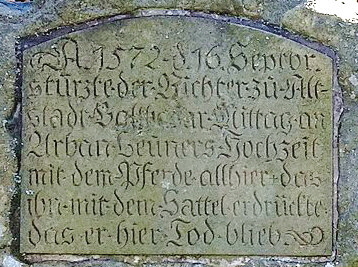 A. 1572. d. 16. Septbr.
stürzte der Richter zu Alt-
stadt Balthasar Mittag an
Urban Heuners Hochzeit
mit dem Pferde allhier das
ihn mit dem Sattel erdrückte
das er hier Tod blieb